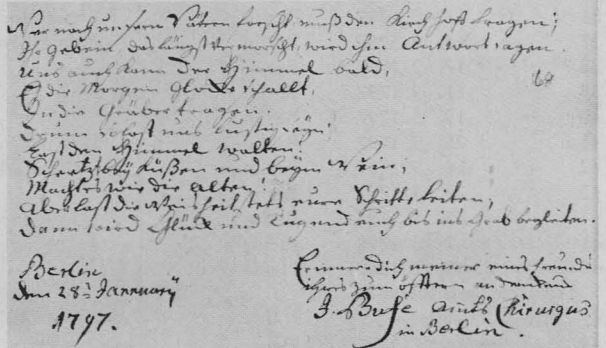 Wer nach unsern Vätern forscht muß den Kirchhoft fragen;
Ihr gebein das längst vermorscht, wird ihm Antwort sagen.
Uns auch kann der Himmel bald,
Eh die Morgen glocke schallt,
In die Gräber tragen.
Drum solast uns lustig seyn!
Last den Himmel walten!
Schertzt bey Küßen und beym Wein;
Machts wie die Alten!
Aber last die Weisheit stets eure Schritte leiten,
Dann wird Glück und Tugend euch bis ins Grab begleiten.
Berlin
den 28t Jannuary
1797.
Erinnere dich meiner eines freunds
ihres zum öfftern andenkend
J. Buse Amts Chirurgus
in Berlin.